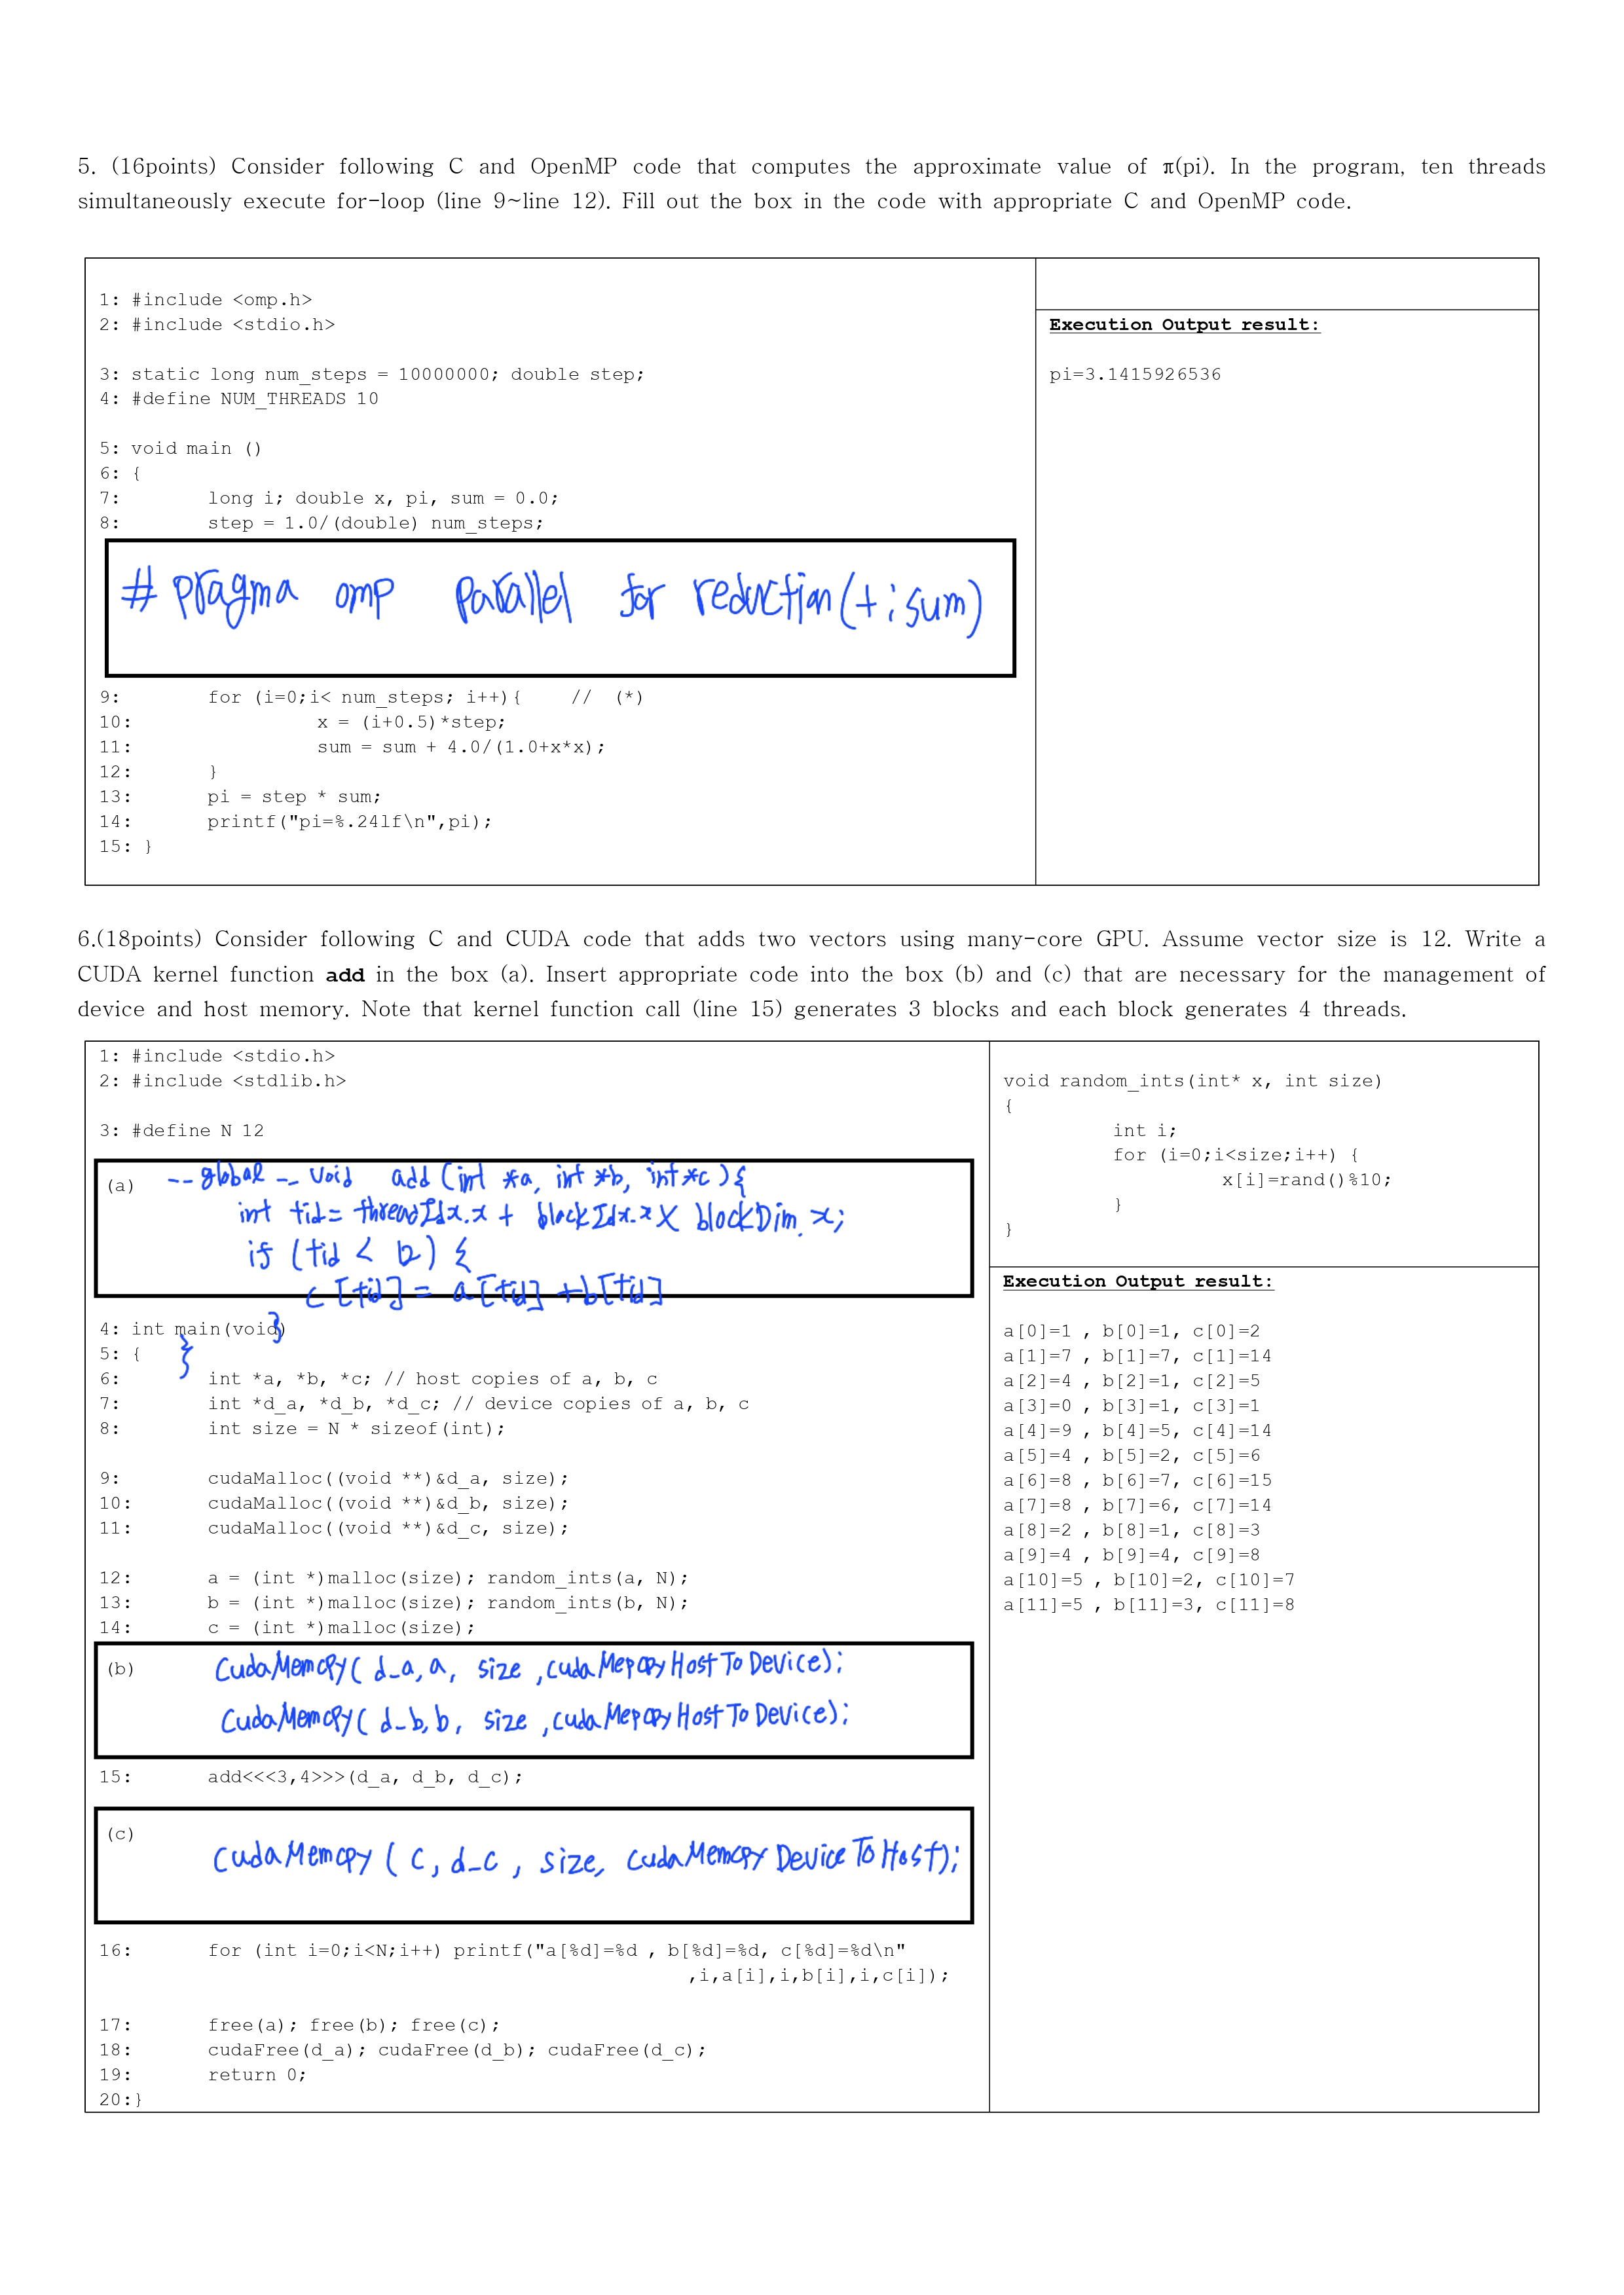 5. (16points) Consider following C and OpenMP code that computes the approximate value of π(pi). In the program, ten threads
simultaneously execute for-loop (line 9~line 12). Fill out the box in the code with appropriate C and OpenMP code.
1: #include <omp.h>
2: #include <stdio.h>
3: static long num_steps = 10000000; double step;
4: #define NUM_THREADS 10
5: void main ()
6: {
7: long i; double x, pi, sum = 0.0;
8: step = 1.0/(double) num_steps;
# pragma omp parallel for reduction(+:sum)
9: for (i=0;i< num_steps; i++){ // (*)
10: x = (i+0.5)*step;
11: sum = sum + 4.0/(1.0+x*x);
12: }
13: pi = step * sum;
14: printf("pi=%.24lf\n",pi);
15: }
Execution Output result:
pi=3.1415926536
6.(18points) Consider following C and CUDA code that adds two vectors using many-core GPU. Assume vector size is 12. Write a
CUDA kernel function add in the box (a). Insert appropriate code into the box (b) and (c) that are necessary for the management of
device and host memory. Note that kernel function call (line 15) generates 3 blocks and each block generates 4 threads.
1: #include <stdio.h>
2: #include <stdlib.h>
3: #define N 12
(a) __global__ void add (int *a, int *b, int *c){
int tid= threadIdx.x + blockIdx.x X blockDim.x;
if (tid < 12) {
c[tid] = a[tid] +b[tid]
}
}
4: int main(void)
5: {
6: int *a, *b, *c; // host copies of a, b, c
7: int *d_a, *d_b, *d_c; // device copies of a, b, c
8: int size = N * sizeof(int);
9: cudaMalloc((void **)&d_a, size);
10: cudaMalloc((void **)&d_b, size);
11: cudaMalloc((void **)&d_c, size);
12: a = (int *)malloc(size); random_ints(a, N);
13: b = (int *)malloc(size); random_ints(b, N);
14: c = (int *)malloc(size);
(b) CudaMemcpy( d_a, a, size ,cudaMepcpyHostToDevice);
CudaMemcpy( d_b, b, size ,cudaMepcpyHostToDevice);
15: add<<<3,4>>>(d_a, d_b, d_c);
(c) cudaMemcpy ( c, d_c , size, cudaMemcpyDeviceToHost);
16: for (int i=0;i<N;i++) printf("a[%d]=%d , b[%d]=%d, c[%d]=%d\n"
,i,a[i],i,b[i],i,c[i]);
17: free(a); free(b); free(c);
18: cudaFree(d_a); cudaFree(d_b); cudaFree(d_c);
19: return 0;
20:}
void random_ints(int* x, int size)
{
int i;
for (i=0;i<size;i++) {
x[i]=rand()%10;
}
}
Execution Output result:
a[0]=1 , b[0]=1, c[0]=2
a[1]=7 , b[1]=7, c[1]=14
a[2]=4 , b[2]=1, c[2]=5
a[3]=0 , b[3]=1, c[3]=1
a[4]=9 , b[4]=5, c[4]=14
a[5]=4 , b[5]=2, c[5]=6
a[6]=8 , b[6]=7, c[6]=15
a[7]=8 , b[7]=6, c[7]=14
a[8]=2 , b[8]=1, c[8]=3
a[9]=4 , b[9]=4, c[9]=8
a[10]=5 , b[10]=2, c[10]=7
a[11]=5 , b[11]=3, c[11]=8